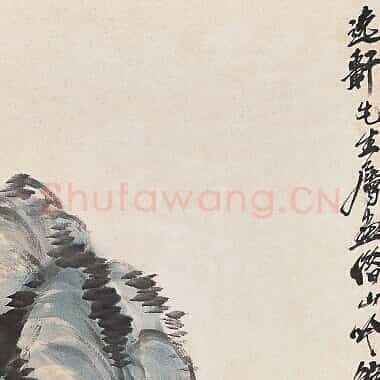 逸軒先生屬画仿山吟館
Shufawang.CN